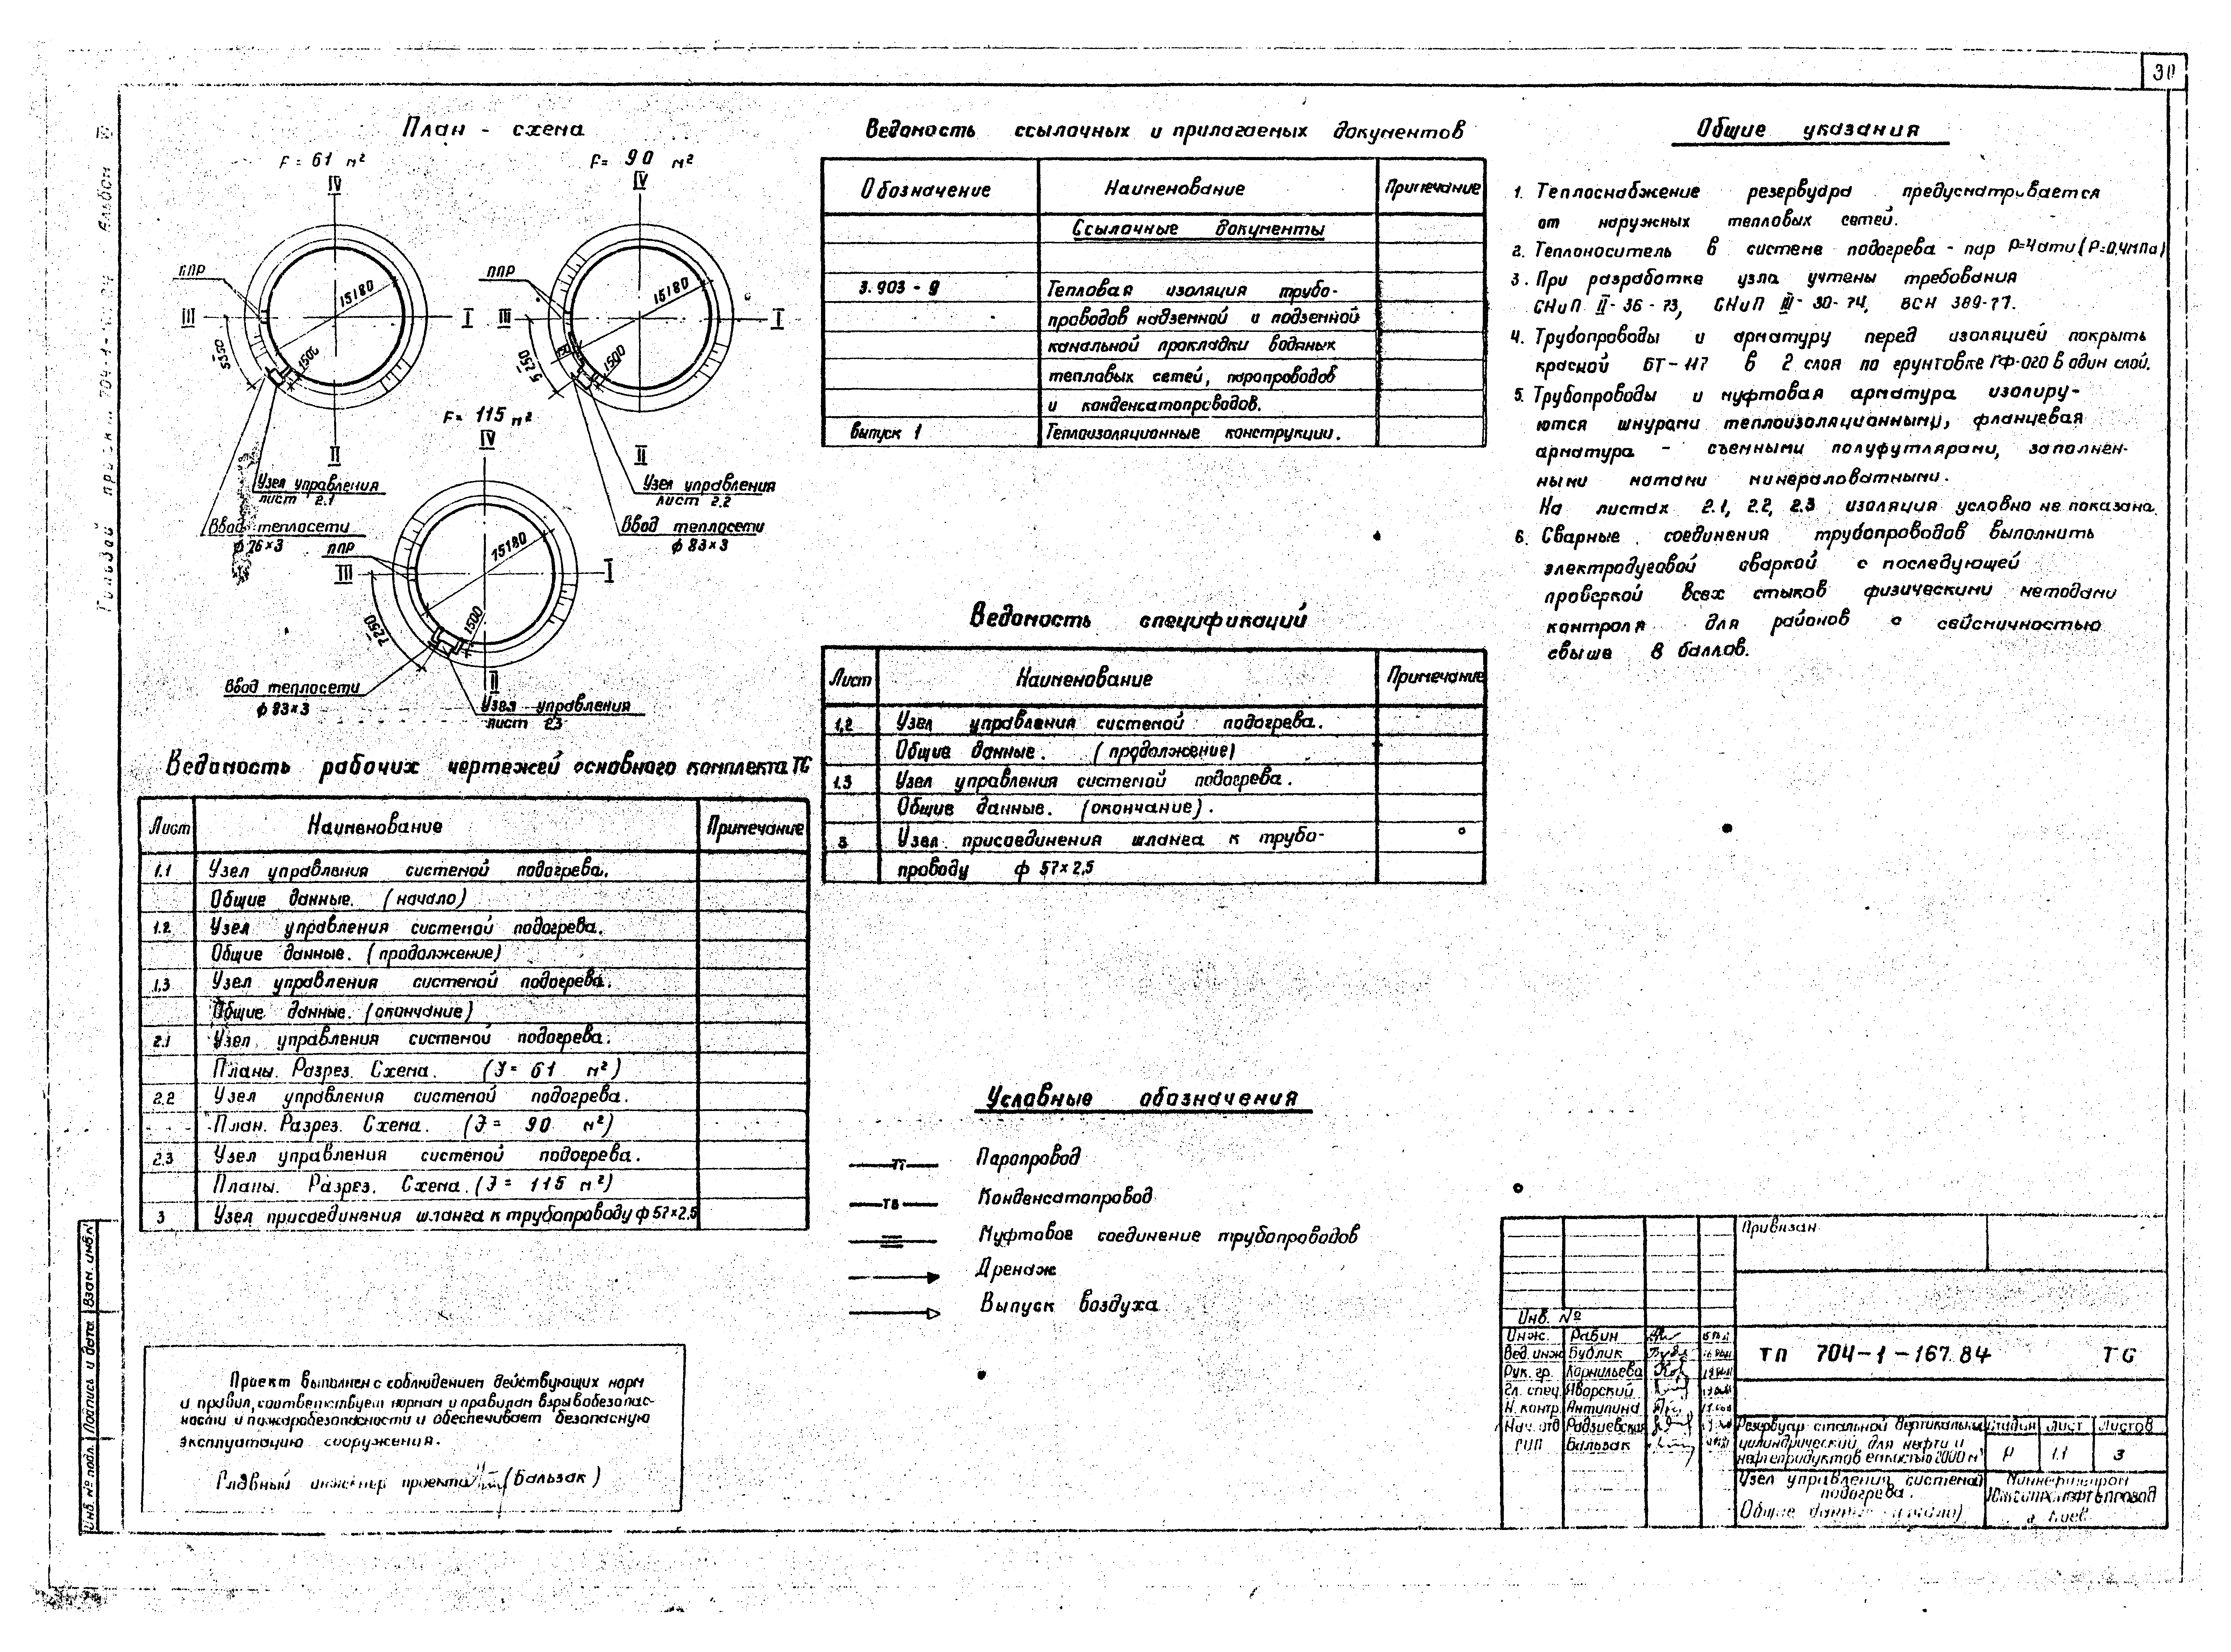 30
Альбом IV
Типовой проект 704-1-167.84
План - схема
F= 61 м²
IV
ппр
15180
III
I
5350
1500
II
Узел управления
лист 2.1
Ввод теплосети
ф 76×3
F= 90 м²
IV
ппр
15180
III
I
5250
1500
II
Узел управления
лист 2.2
Ввод теплосети
ф 83×3
F= 115 м²
IV
ппр
15180
III
I
7250
1500
II
Ввод теплосети
ф 83×3
Узел управления
лист 2.3
Ведомость рабочих чертежей основного комплекта ТС
Лист Наименование Примечание
1.1 Узел управления системой подогрева.
Общие данные. (начало)
1.2 Узел управления системой подогрева.
Общие данные. (продолжение)
1.3 Узел управления системой подогрева.
Общие данные. (окончание)
2.1 Узел управления системой подогрева.
Планы. Разрез. Схема. (F= 61 м²)
2.2 Узел управления системой подогрева.
План. Разрез. Схема. (F= 90 м²)
2.3 Узел управления системой подогрева.
Планы. Разрез. Схема. (F= 115 м²)
3 Узел присоединения шланга к трубопроводу ф 57×2,5
Проект выполнен с соблюдением действующих норм
и правил, соответствует нормам и правилам взрывобезопас-
ности и пожаробезопасности и обеспечивает безопасную
эксплуатацию сооружения.
Главный инженер проекта (Бальзак)
Ведомость ссылочных и прилагаемых документов
Обозначение Наименование Примечание
Ссылочные документы
3.903 - 9 Тепловая изоляция трубо-
проводов надземной и подземной
канальной прокладки водяных
тепловых сетей, паропроводов
и конденсатопроводов.
выпуск 1 Теплоизоляционные конструкции.
Ведомость спецификаций
Лист Наименование Примечание
1,2 Узел управления системой подогрева.
Общие данные. (продолжение)
1.3 Узел управления системой подогрева.
Общие данные. (окончание).
3 Узел присоединения шланга к трубо-
проводу ф 57×2,5
Условные обозначения
Паропровод
Т8 Конденсатопровод
Муфтовое соединение трубопроводов
Дренаж
Выпуск воздуха
Общие указания
1. Теплоснабжение резервуара предусматривается
от наружных тепловых сетей.
2. Теплоноситель в системе подогрева - пар Р=4ати (Р=0,4мПа)
3. При разработке узла учтены требования
СНиП II-36-73, СНиП III-30-74, ВСН 389-77.
4. Трубопроводы и арматуру перед изоляцией покрыть
краской БТ-177 в 2 слоя по грунтовке ГФ-020 в один слой.
5. Трубопроводы и муфтовая арматура изолиру-
ются шнурами теплоизоляционными, фланцевая
арматура - съемными полуфутлярами, заполнен-
ными матами минераловатными.
На листах 2.1, 2.2, 2.3 изоляция условно не показана.
6. Сварные соединения трубопроводов выполнить
электродуговой сваркой с последующей
проверкой всех стыков физическими методами
контроля для районов с сейсмичностью
свыше 8 баллов.
Привязан
Инв. №
Инж. Рабин
Вед. инж Бублик
Рук. гр. Корнильева
Гл. спец. Яворский
Н. контр. Антипина
Нач. отд Радзиевская
ГИП Бальзак
ТП 704-1-167.84 ТС
Резервуар стальной вертикальный
цилиндрический для нефти и
нефтепродуктов емкостью 2000 м³
Стадия Лист Листов
Р 1.1 3
Узел управления системой
подогрева.
Общие данные (начало)
Миннефтепром
Южгипронефтепровод
г. Киев
Инв. № подл. Подпись и дата Взам. инв.№